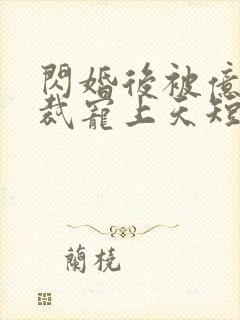 閃婚後被億
裁寵上天短
蘭橈